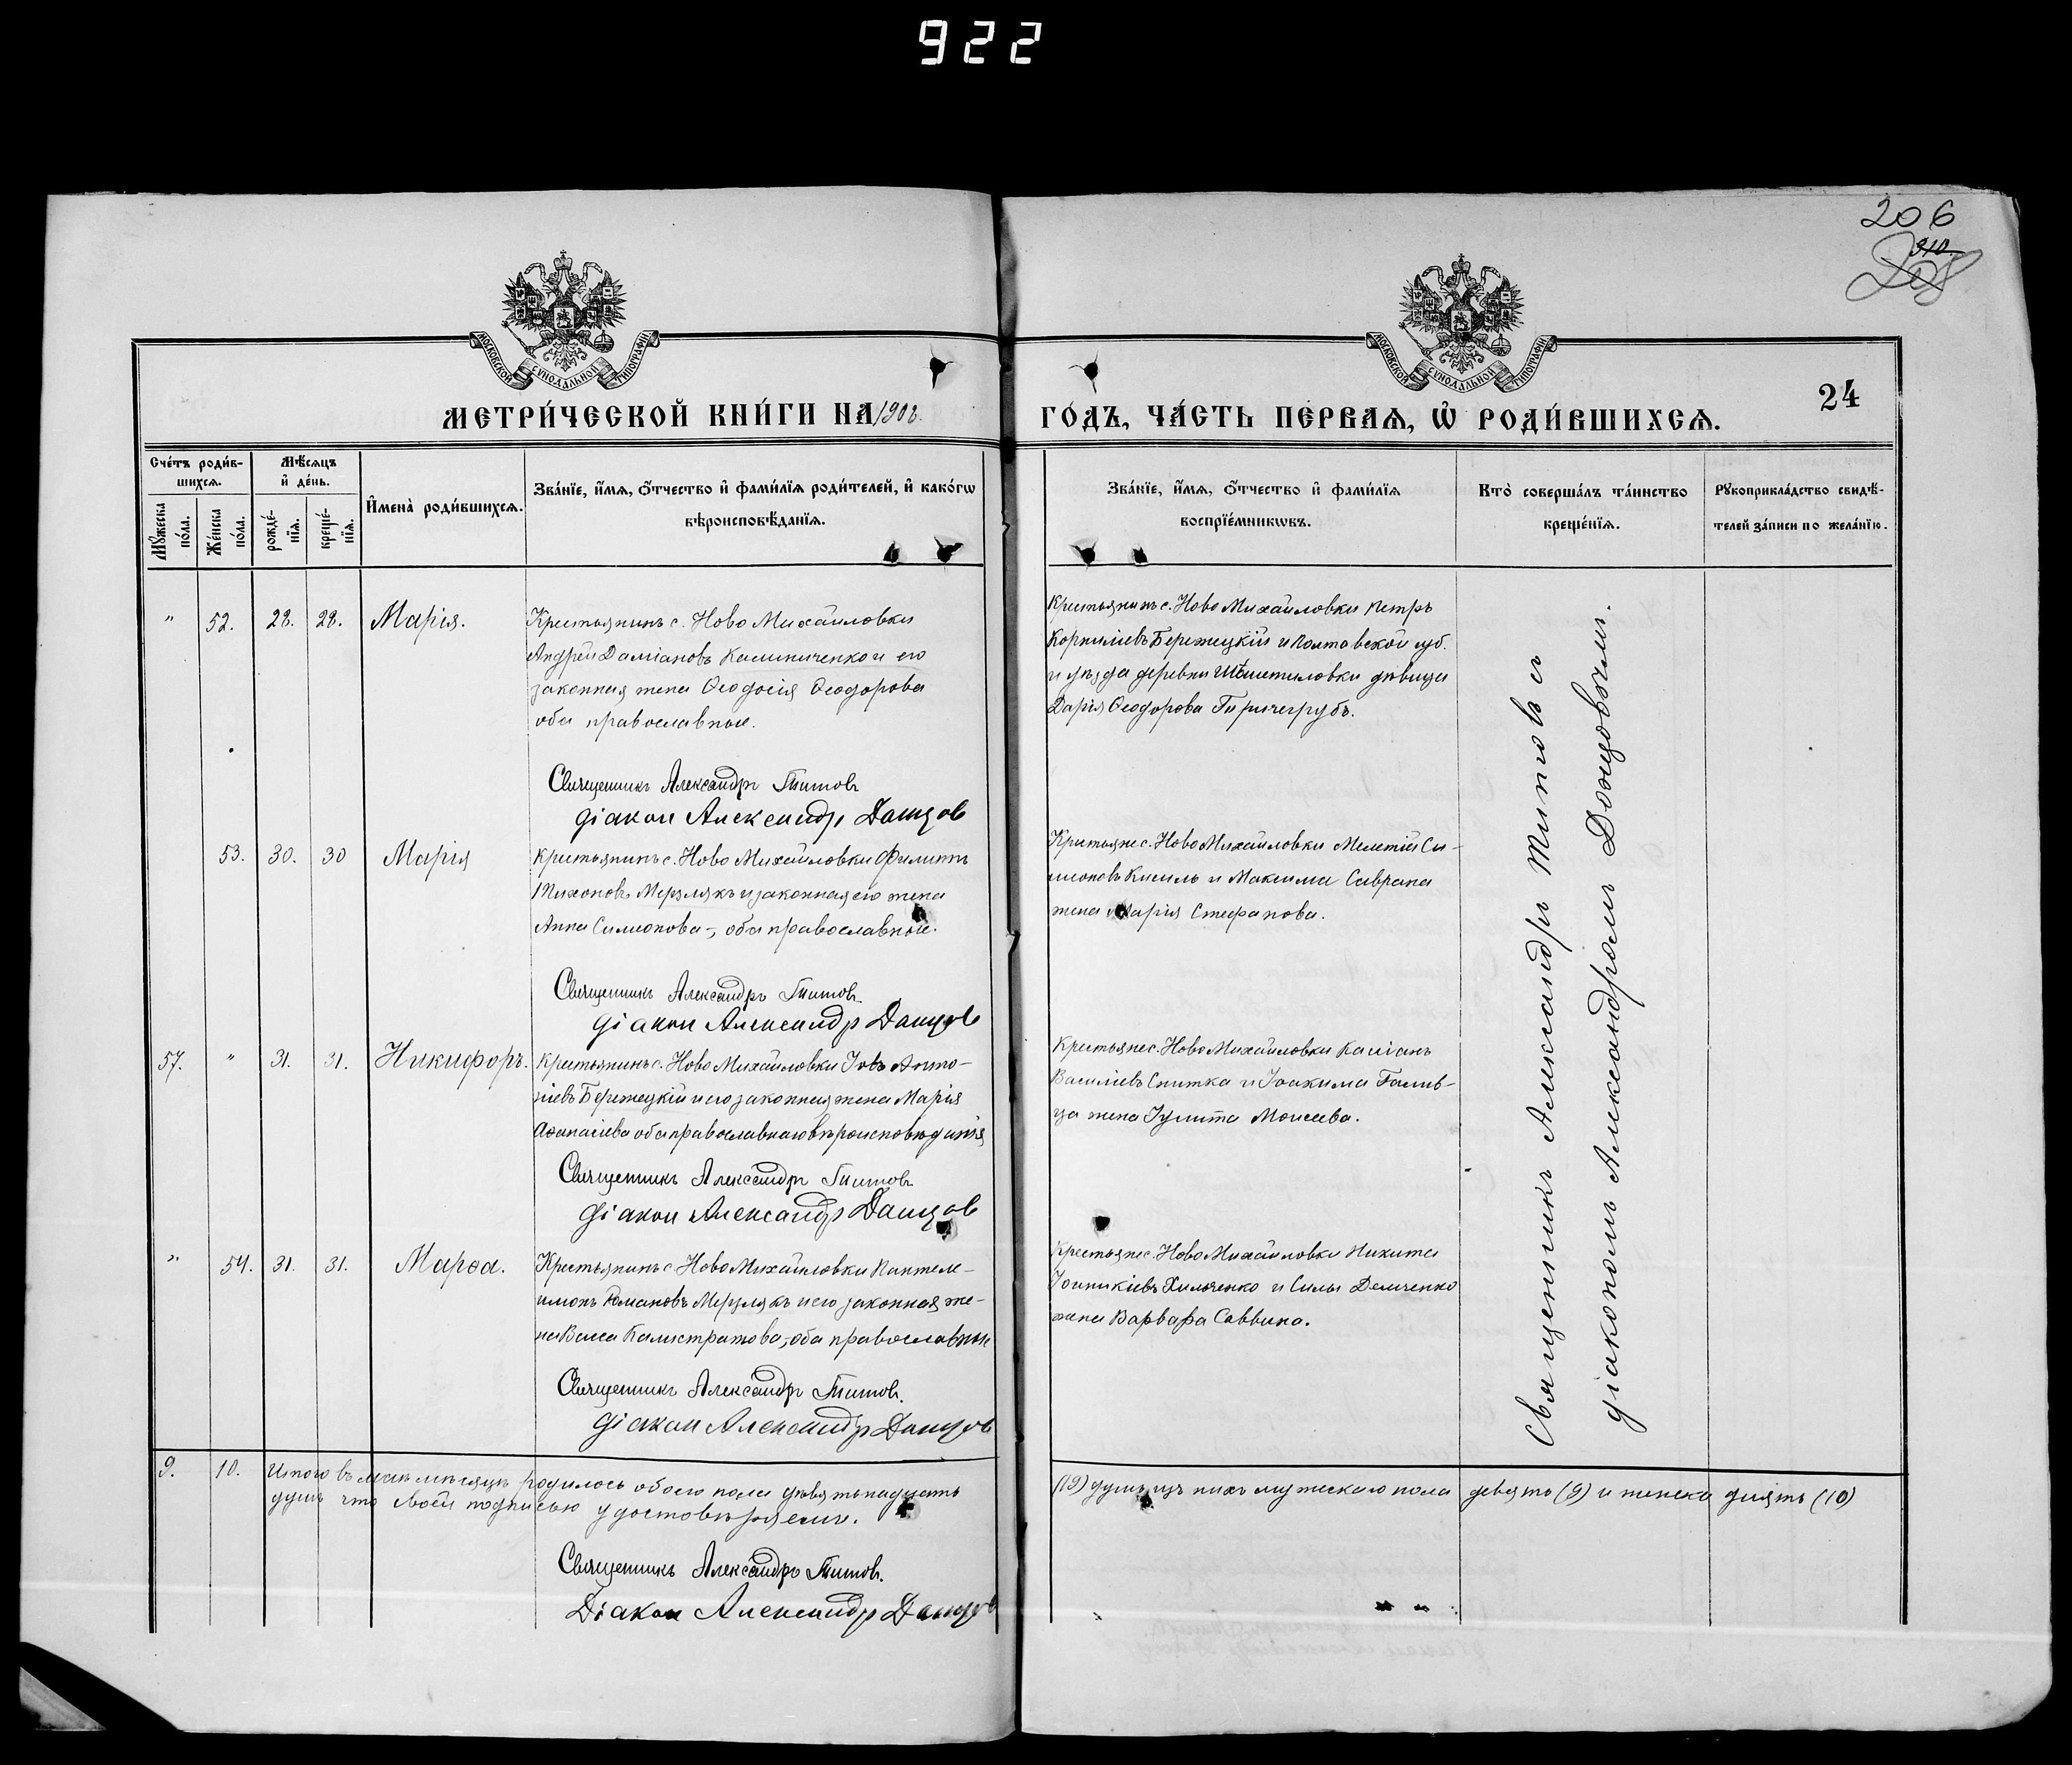 922
206
310
208
МОСКОВСКОЙ СѴНОДАЛЬНОЙ ТИПОГРАФІИ
МОСКОВСКОЙ СѴНОДАЛЬНОЙ ТИПОГРАФІИ
МЕТРИ́ЧЕСКОЙ КНИ́ГИ НА 1908.
ГО́ДЪ, ЧА́СТЬ ПЕ́РВАѦ, Ѡ҆ РОДИ́ВШИХСѦ.
24
Сче́тъ роди́в-
шихсѧ.
Мꙋ́жеска
по́ла.
Же́нска
по́ла.
Мѣ́сѧцъ
и҆ де́нь.
рожде́-
нїѧ.
креще́-
нїѧ.
И҆мена̀ роди́вшихсѧ.
Зва́нїе, и҆́мѧ, ѻ҆́тчество и҆ фами́лїѧ роди́телей, и҆ како́гѡ
вѣроисповѣ́данїѧ.
Зва́нїе, и҆́мѧ, ѻ҆́тчество и҆ фами́лїѧ
воспрїе́мникѡвъ.
Кто̀ соверша́лъ та́инство
креще́нїѧ.
Рꙋкоприкла́дство свидѣ́-
телей за́писи по жела́нїю.
" 52. 28. 28. Марія.
Крестьянинъ с. Ново Михайловки
Андрей Даміановъ Калиниченко и его
законная жена Ѳеодосія Ѳеодорова
оба православные.
Священникъ Александръ Титовъ
діакон Александръ Данцов
Крестьянинъ с. Ново Михайловки Петръ
Корниліевъ Бережецкій и Полтавской губ.
и уѣзда деревни девица
Дарія Ѳеодорова
53. 30. 30 Марія
Крестьянинъ с. Ново Михайловки Филиппъ
Тихоновъ Мерзлякъ и законная его жена
Анна Симеонова -, оба православные.
Священникъ Александръ Титовъ.
діакон Александр Данцов
Крестьяне с. Ново Михайловки Мелетій Си-
меоновъ Кисиль и Максима Саврана
жена Марія Стефанова.
57. " 31. 31. Никифоръ.
Крестьянинъ с. Ново Михайловки Іовъ Анто-
ніевъ Бережецкій и его законная жена Марія
Аѳанасіева оба православнаго вѣроисповѣданія
Священникъ Александръ Титовъ
діакон Александр Данцов
Крестьяне с. Ново Михайловки Касіанъ
Василіевъ Снитка и Іоакима Галив-
ца жена Іулита Моисеева.
" 54. 31. 31. Марѳа.
Крестьянинъ с. Ново Михайловки Пантеле-
имонъ Романовъ Мерзлякъ и его законная же-
на Васса Калистратова, оба православные
Священникъ Александръ Титовъ.
діакон Александр Данцов
Крестьяне с. Ново Михайловки Никита
Іоаникіевъ Хильченко и Силы Демченко
жена Варвара Саввина.
Священникъ Александръ Титовъ и
діакономъ Александромъ Донцовымъ.
9. 10. Итого въ маѣ мѣсяцѣ родилось обоего пола девятьнадцать
(19) душъ, изъ нихъ мужескаго пола девять (9) и женска десять (10)
душъ что своей подписью удостовѣряемъ.
Священникъ Александръ Титовъ.
Діакон Александр Данцов